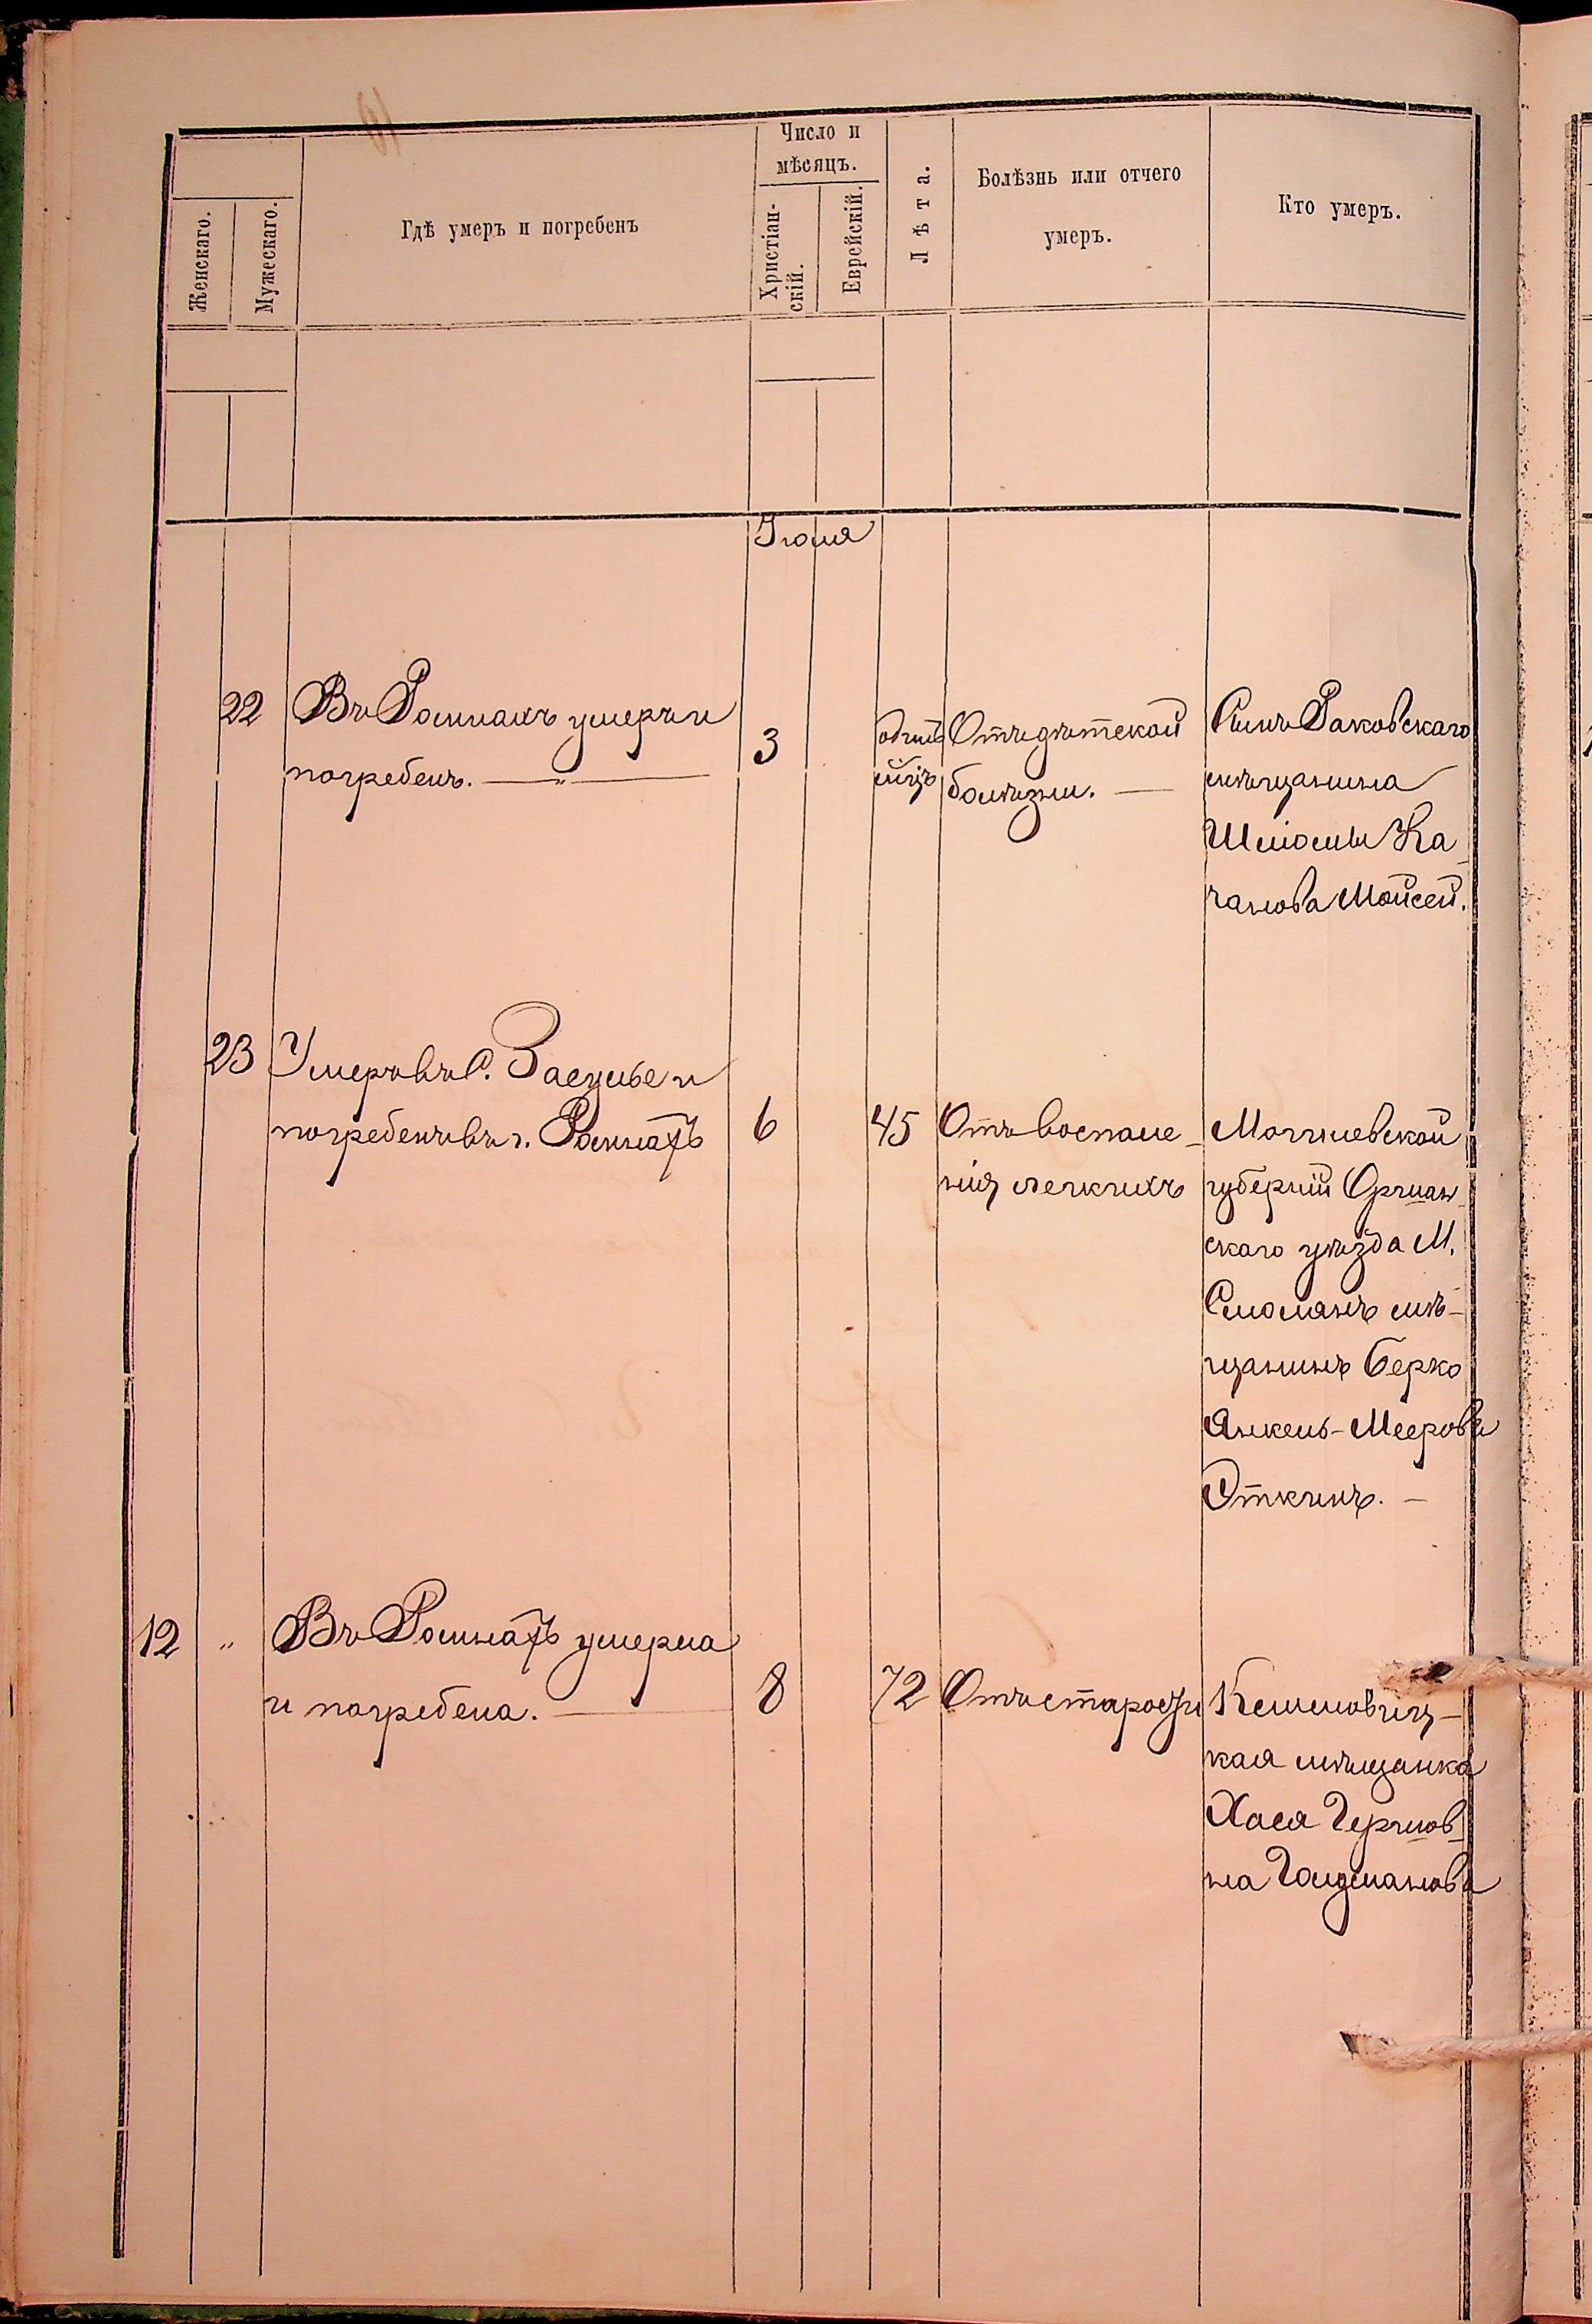 Женскаго.
Мужескаго.
Гдѣ умеръ и погребенъ
Число и
мѣсяцъ.
Христіан-
скій.
Еврейскій.
Лѣта.
Болѣзнь или отчего
умеръ.
Кто умеръ.
Іюля
22
Въ Ромнахъ умеръ и
погребенъ.
3
одинъ
м-цъ
Отъ дѣтской
болѣзни.
Сынъ Раковскаго
мѣщанина
Шліомы Ка
чанова Мойсей.
23
Умеръ въ С. Засулье и
погребенъ въ г. Ромнахъ
6
45
Отъ воспале-
нія легкихъ
Могилевской
губерніи Оршан
скаго уѣзда М.
Смолянъ мѣ-
щанинъ Берко
Янкель-Мееровъ
Эткинъ.
12
"
Въ Ромнахъ умерла
и погребена.
8
72
Отъ старости
кая мѣщанка
Хася Гершов-
на Голдманова